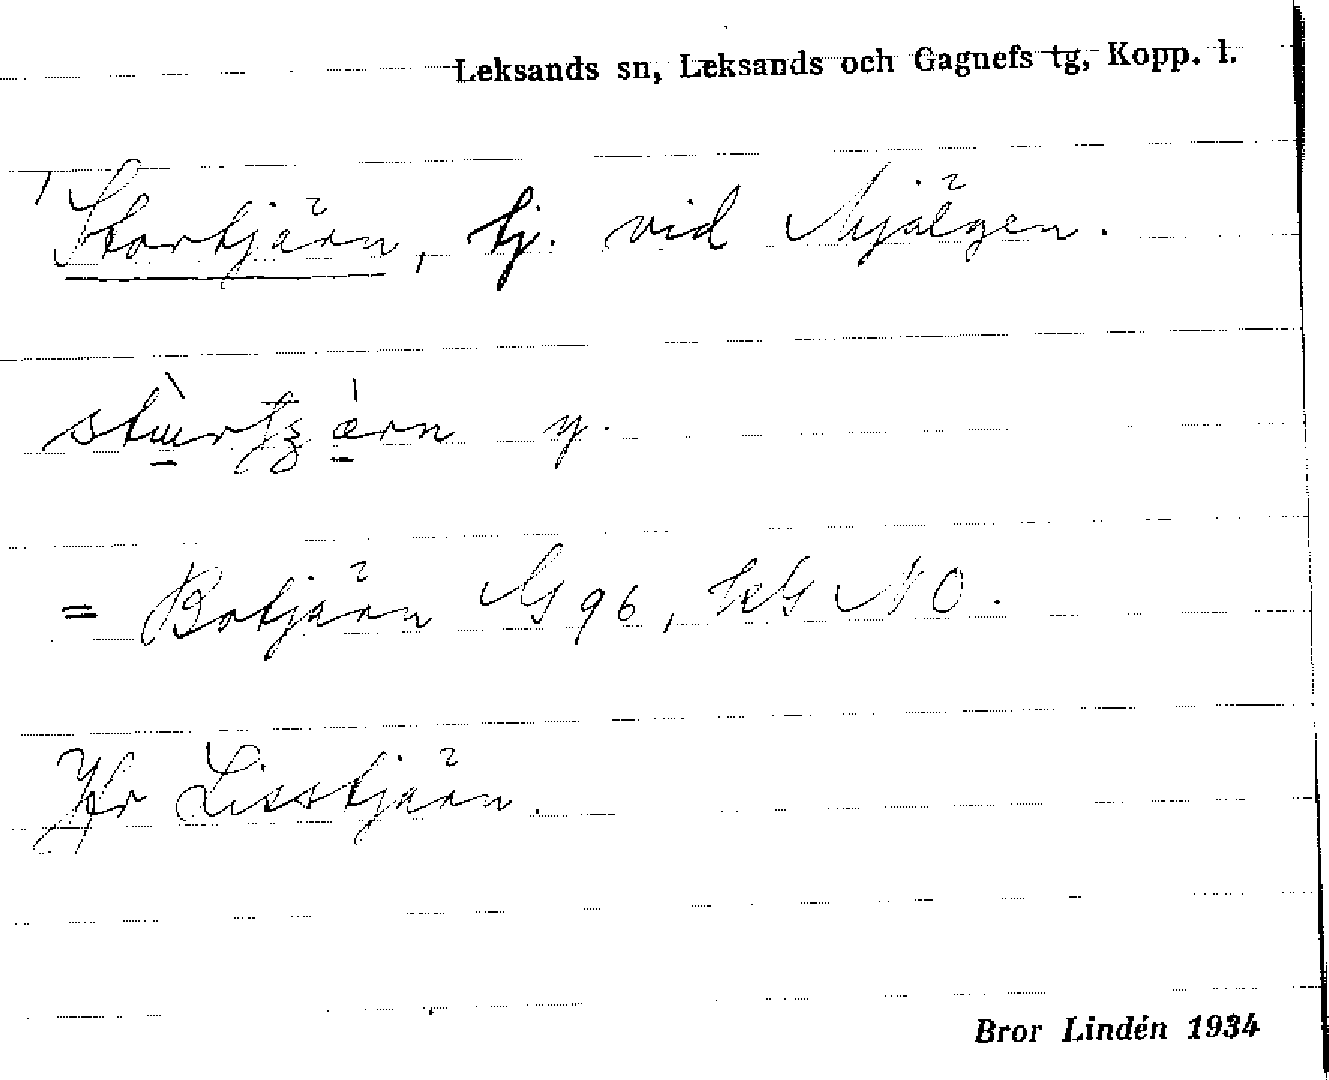 Leksands sn, Leksands och Gagnefs tg, Kopp. l.
1 Stortjärn, tj. vid Mjälgen.
y.
= Botjärn MG 96, NO.
Jfr Lisstjärn.
Bror Lindén 1934